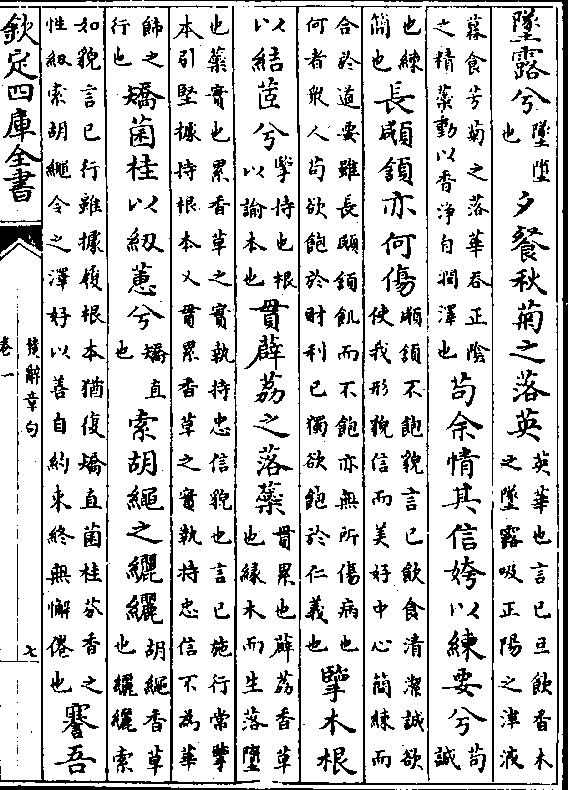 墜露兮墜墮也夕餐秋菊之落英英華也言己旦飲香木之墜露吸正陽之津液
暮食芳菊之落華吞正陰之精蘂動以香淨自潤澤也苟余情其信姱以練要兮苟誠
也練簡也長顑頷亦何傷顑頷不飽貌言己飲食清潔誠欲使我形貌信而美好中心簡練而
合於道要雖長顑頷飢而不飽亦無所傷病也何者衆人苟欲飽於財利己獨欲飽於仁義也擥木根
以結茝兮擥持也根以諭本也貫薜荔之落蘂貫累也薜荔香草也緣木而生落墮
也蘂實也累香草之實執持忠信貌也言己施行常擥本引堅據持根本又貫累香草之實執持忠信不為華
飾之行也矯菌桂以紉蕙兮矯直也索胡繩之纚纚胡繩香草也纚纚索
如貌言己行雖據履根本猶復矯直菌桂芬香之性紉索胡繩令之澤好以善自約束終無懈倦也謇吾
欽定四庫全書
楚辭章句
卷一
七